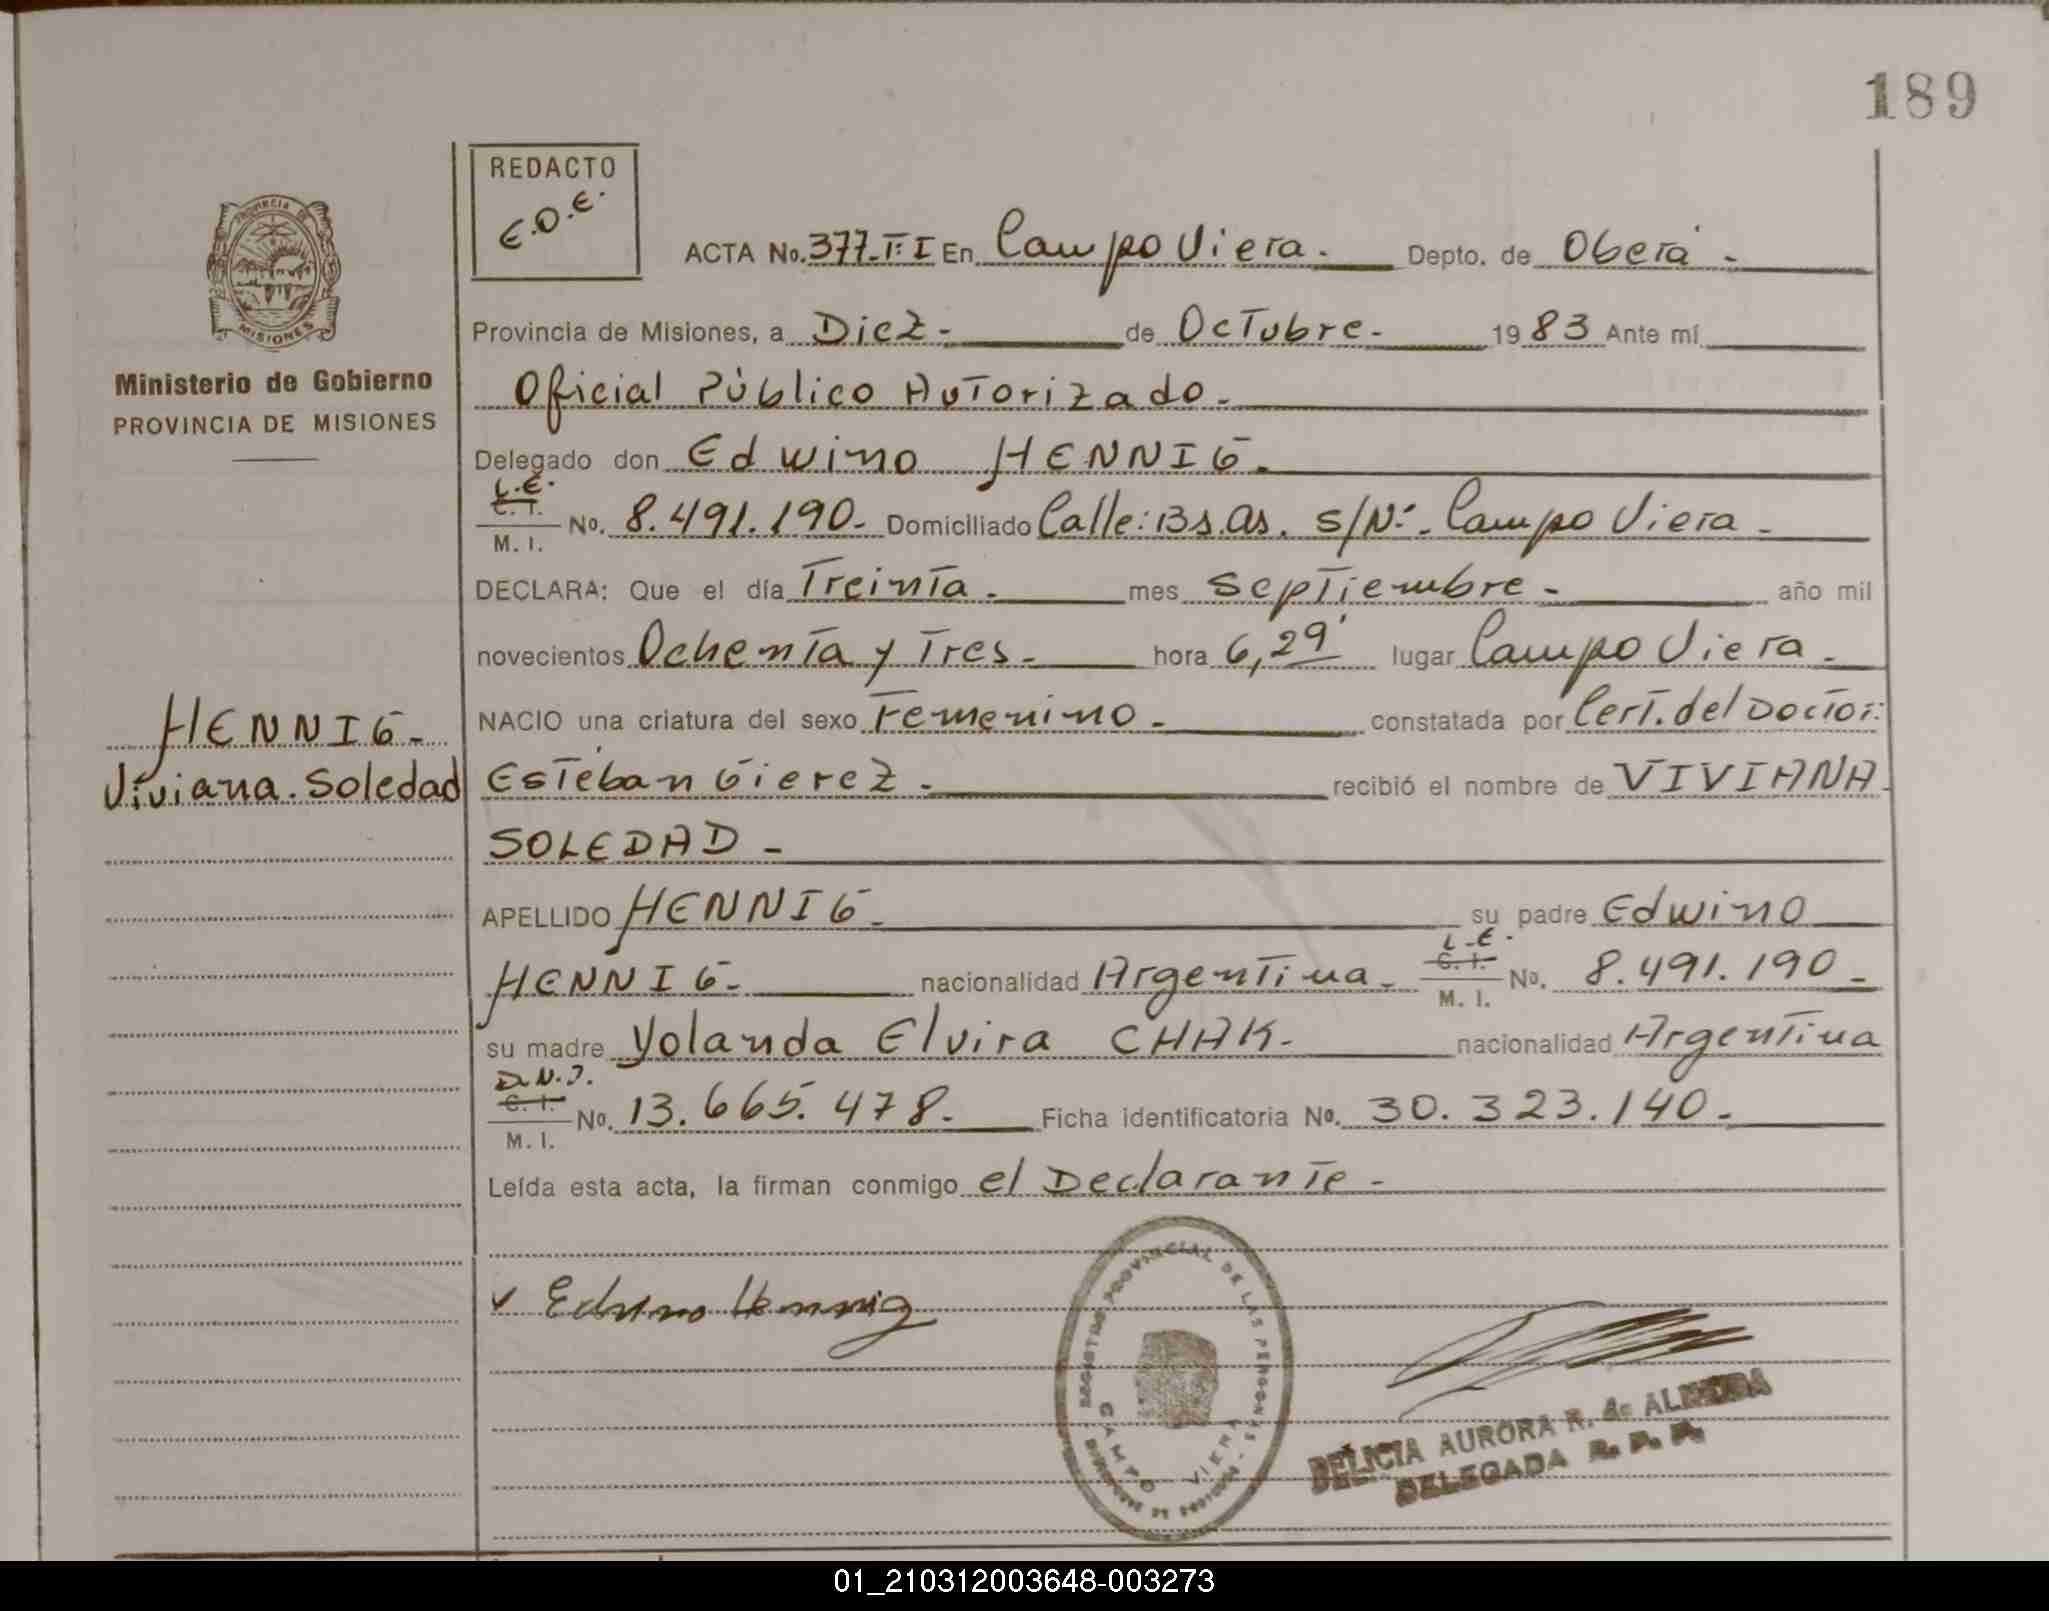 189
REDACTO
E.O.E.
PROVINCIA DE
MISIONES
Ministerio de Gobierno
PROVINCIA DE MISIONES
ACTA No. 377-T:I En Campo Viera. Depto. de Oberá -
Provincia de Misiones, a Diez - de Octubre - 1983 Ante mí
Oficial Público Autorizado.
Delegado don Edwino HENNIG.
L.E.
C. I.
M. I.
No. 8.491.190. Domiciliado Calle: Bs.As. S/Nº. Campo Viera -
DECLARA: Que el día Treinta - mes Septiembre - año mil
novecientos Ochenta y Tres - hora 6,29' lugar Campo Viera -
HENNIG -
Viviana Soledad
NACIO una criatura del sexo Femenino - constatada por Cert. del Doctor:
Esteban Gierez - recibió el nombre de VIVIANA
SOLEDAD -
APELLIDO HENNIG - su padre Edwino
HENNIG - nacionalidad Argentina - L.E. C. I. M. I. No. 8.491.190 -
su madre Yolanda Elvira CHAK - nacionalidad Argentina
D.N.I.
C. I.
M. I.
No. 13.665.478 - Ficha identificatoria No. 30.323.140 -
Leída esta acta, la firman conmigo el Declarante -
Edwino Hennig
REGISTRO PROVINCIAL DE LAS PERSONAS
CAMPO VIERA
DELICIA AURORA R. de ALMEIDA
DELEGADA R. P. P.
01_210312003648-003273